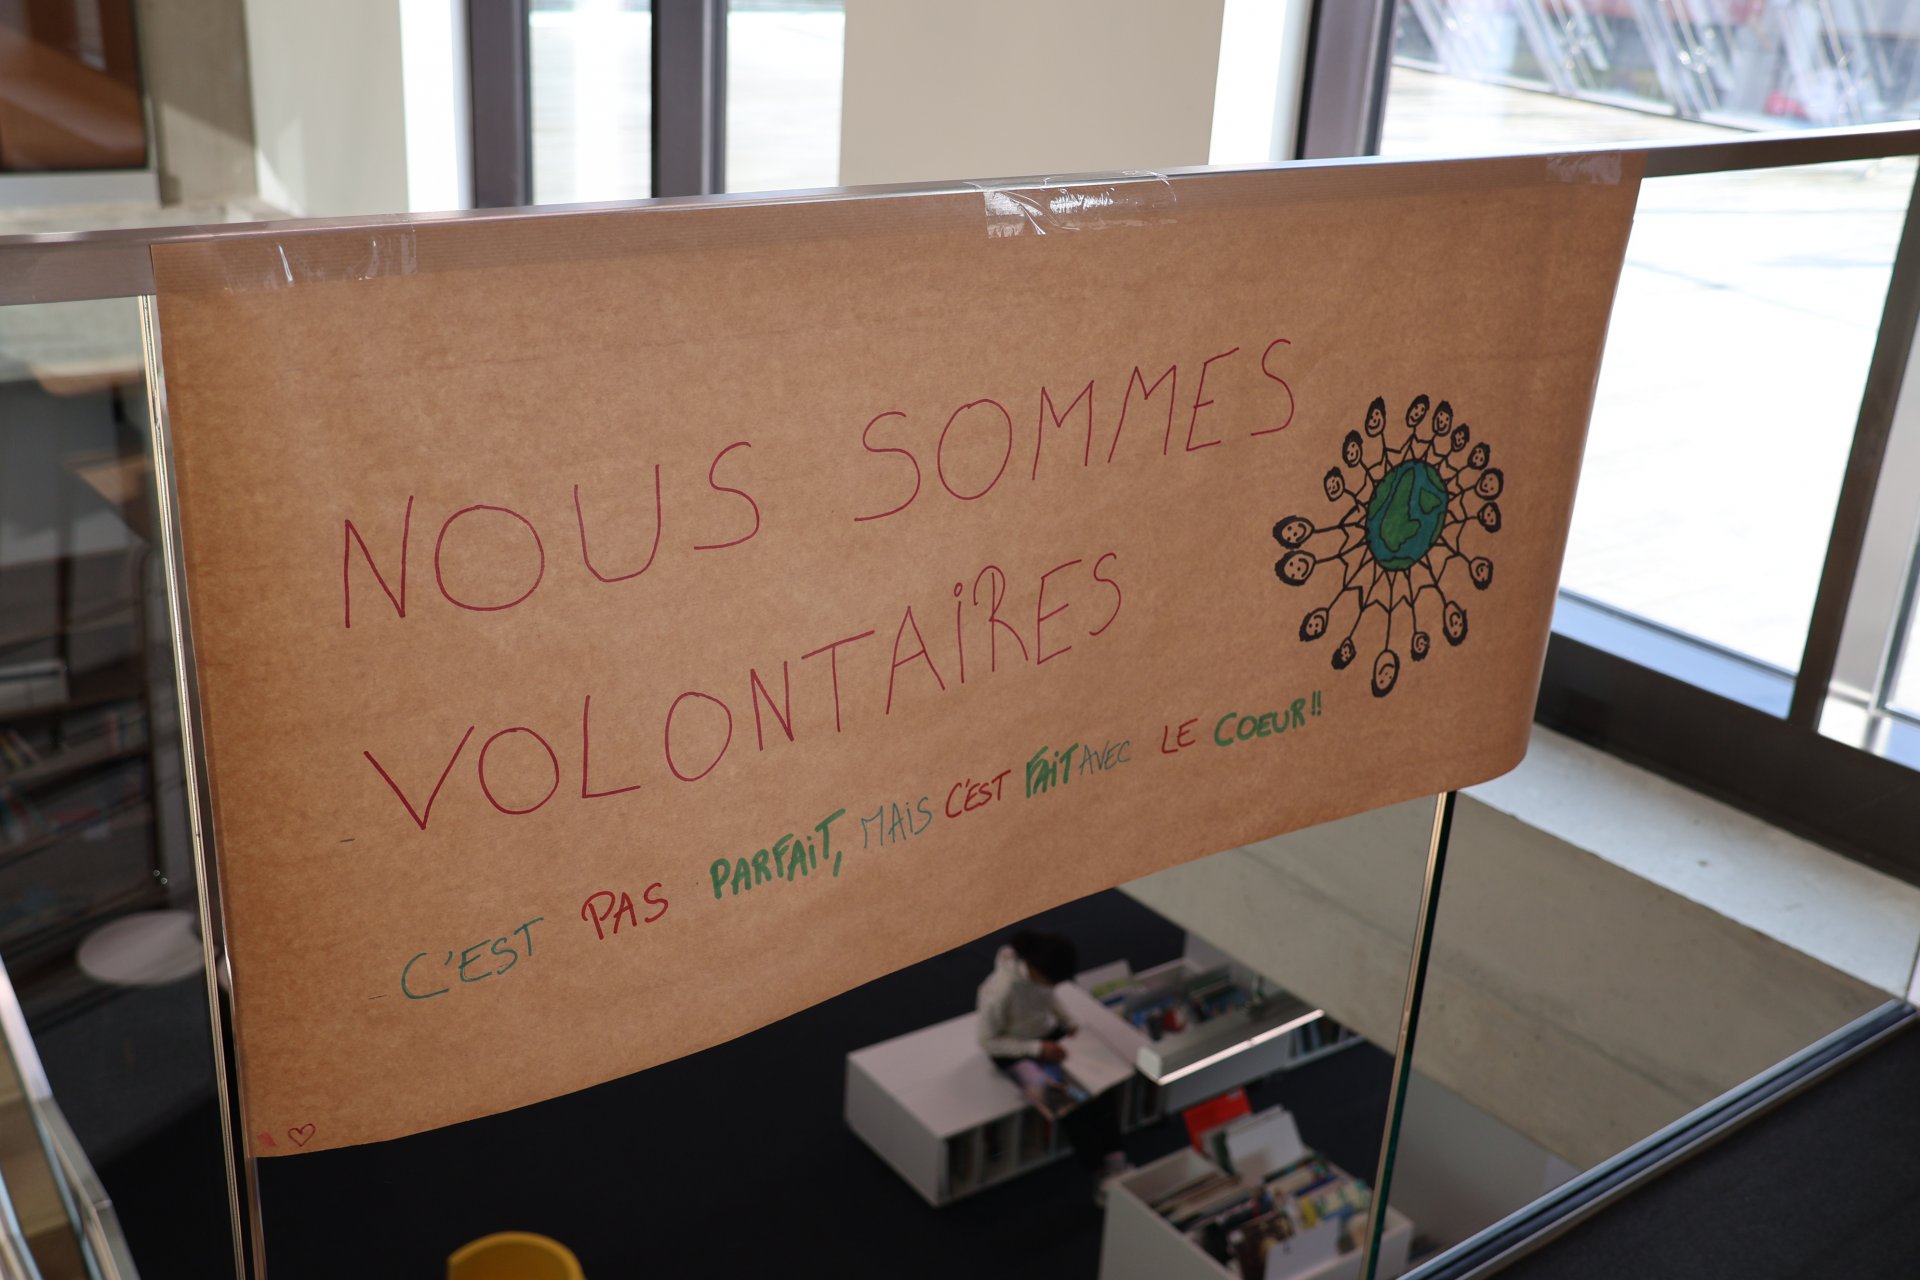 NOUS SOMMES
VOLONTAIRES
C'EST PAS PARFAIT, MAIS C'EST FAIT AVEC LE COEUR!!